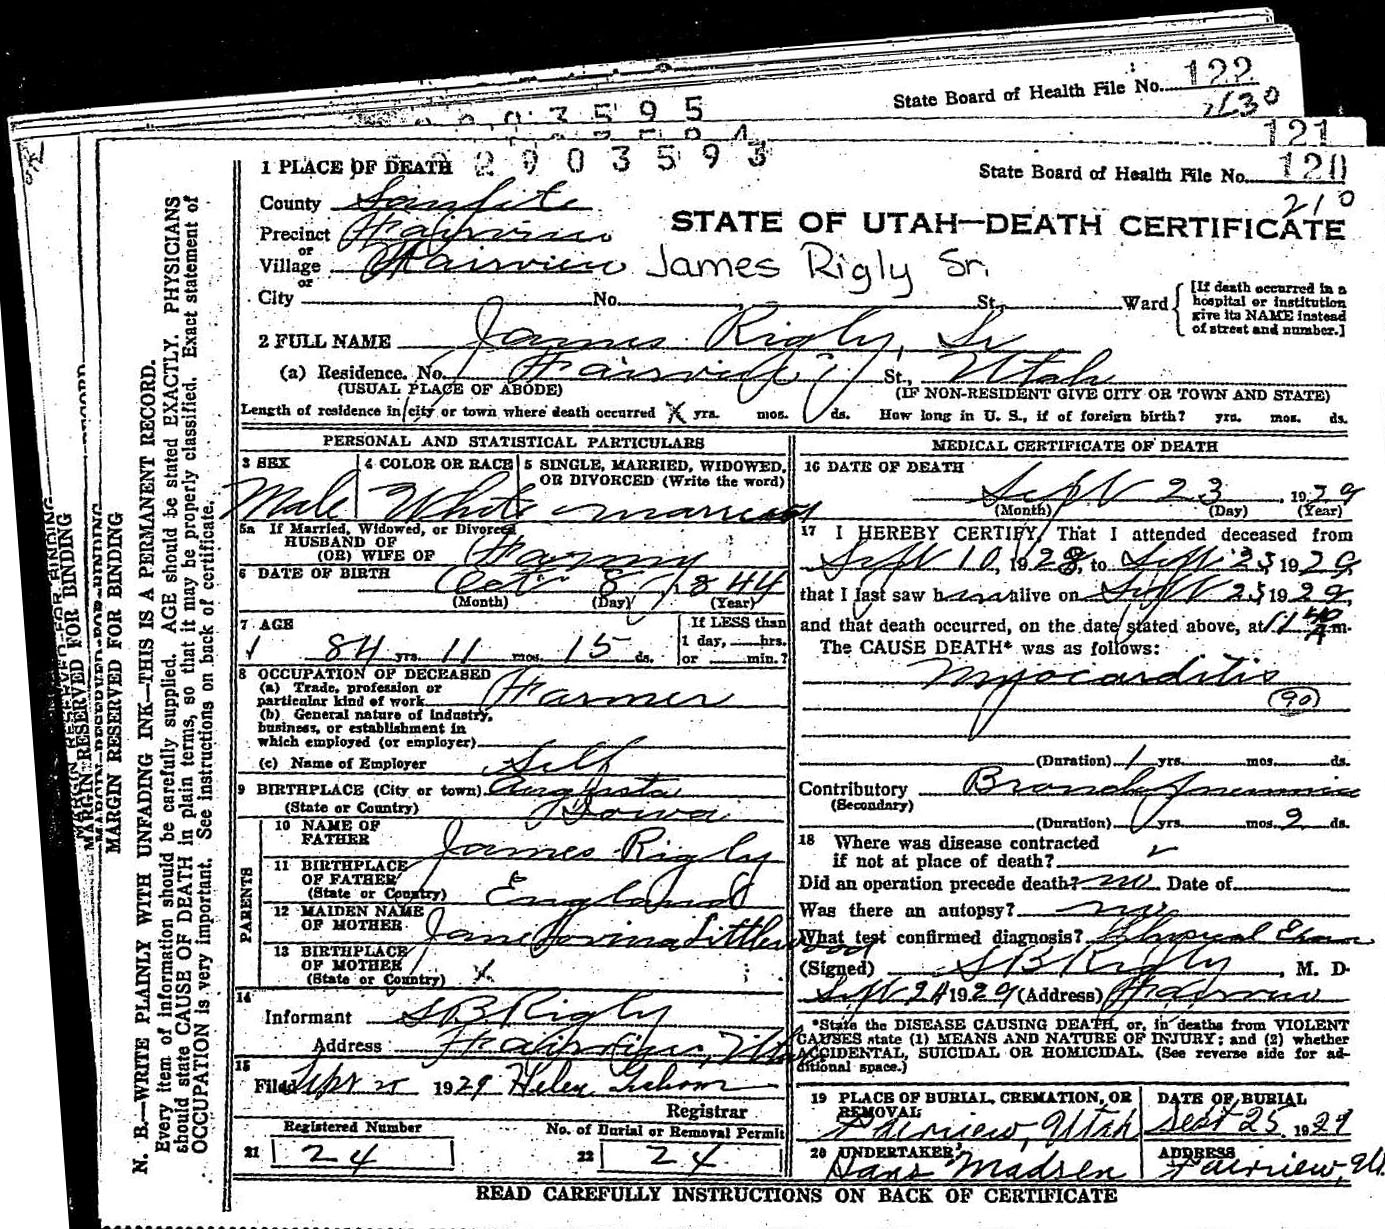 State Board of Health File No. 122
2630
0 3 5 9 5
121
2 9 0 3 5 9 3
1 PLACE OF DEATH
State Board of Health File No. 120
210
County Sanpete
STATE OF UTAH—DEATH CERTIFICATE
Precinct Fairview
or
Village Fairview James Rigly Sr.
or
City No. St. Ward
[If death occurred in a hospital or institution give its NAME instead of street and number.]
2 FULL NAME James Rigby, Sr
(a) Residence. No. Fairview St., Utah
(USUAL PLACE OF ABODE) (IF NON-RESIDENT GIVE CITY OR TOWN AND STATE)
Length of residence in city or town where death occurred X yrs. mos. ds. How long in U. S., if of foreign birth? yrs. mos. ds.
PERSONAL AND STATISTICAL PARTICULARS
3 SEX 4 COLOR OR RACE 5 SINGLE, MARRIED, WIDOWED, OR DIVORCED (Write the word)
Male White married
5a If Married, Widowed, or Divorced
HUSBAND OF
(OR) WIFE OF Fanny
6 DATE OF BIRTH Oct 8 1844
(Month) (Day) (Year)
7 AGE If LESS than
1 day, hrs.
84 yrs. 11 mos. 15 ds. or min.?
8 OCCUPATION OF DECEASED
(a) Trade, profession or
particular kind of work Farmer
(b) General nature of industry,
business, or establishment in
which employed (or employer)
(c) Name of Employer Self
9 BIRTHPLACE (City or town) Augusta
(State or Country) Iowa
PARENTS
10 NAME OF
FATHER James Rigby
11 BIRTHPLACE
OF FATHER
(State or Country) England
12 MAIDEN NAME
OF MOTHER Jane Lovina Littlewood
13 BIRTHPLACE
OF MOTHER
(State or Country) X
14
Informant S B Rigby
Address Fairview, Utah
15
Filed Sept 25 1929 Helen Graham
Registrar
Registered Number No. of Burial or Removal Permit
21 24 22 24
MEDICAL CERTIFICATE OF DEATH
16 DATE OF DEATH
Sept 23, 1929
(Month) (Day) (Year)
17 I HEREBY CERTIFY, That I attended deceased from
Sept 10, 1928, to Sept 23 1929,
that I last saw him alive on Sept 23 1929,
and that death occurred, on the date stated above, at 11 40 A m.
The CAUSE DEATH* was as follows:
Myocarditis
(90)
(Duration) 1 yrs. mos. ds.
Contributory Broncho pneumonia
(Secondary)
(Duration) yrs. mos. 2 ds.
18 Where was disease contracted
if not at place of death?
Did an operation precede death? no Date of
Was there an autopsy? no
What test confirmed diagnosis? Physical Exam
(Signed) S B Rigby, M. D.
Sept 24 1929 (Address) Fairview
*State the DISEASE CAUSING DEATH, or, in deaths from VIOLENT
CAUSES state (1) MEANS AND NATURE OF INJURY; and (2) whether
ACCIDENTAL, SUICIDAL OR HOMICIDAL. (See reverse side for additional space.)
19 PLACE OF BURIAL, CREMATION, OR REMOVAL DATE OF BURIAL
Fairview, Utah Sept 25, 1929
20 UNDERTAKER ADDRESS
Hans Madsen Fairview, Ut.
READ CAREFULLY INSTRUCTIONS ON BACK OF CERTIFICATE
MARGIN RESERVED FOR BINDING
MARGIN RESERVED FOR BINDING
N. B.—WRITE PLAINLY WITH UNFADING INK—THIS IS A PERMANENT RECORD.
Every item of information should be carefully supplied. AGE should be stated EXACTLY. PHYSICIANS
should state CAUSE OF DEATH in plain terms, so that it may be properly classified. Exact statement of
OCCUPATION is very important. See instructions on back of certificate.